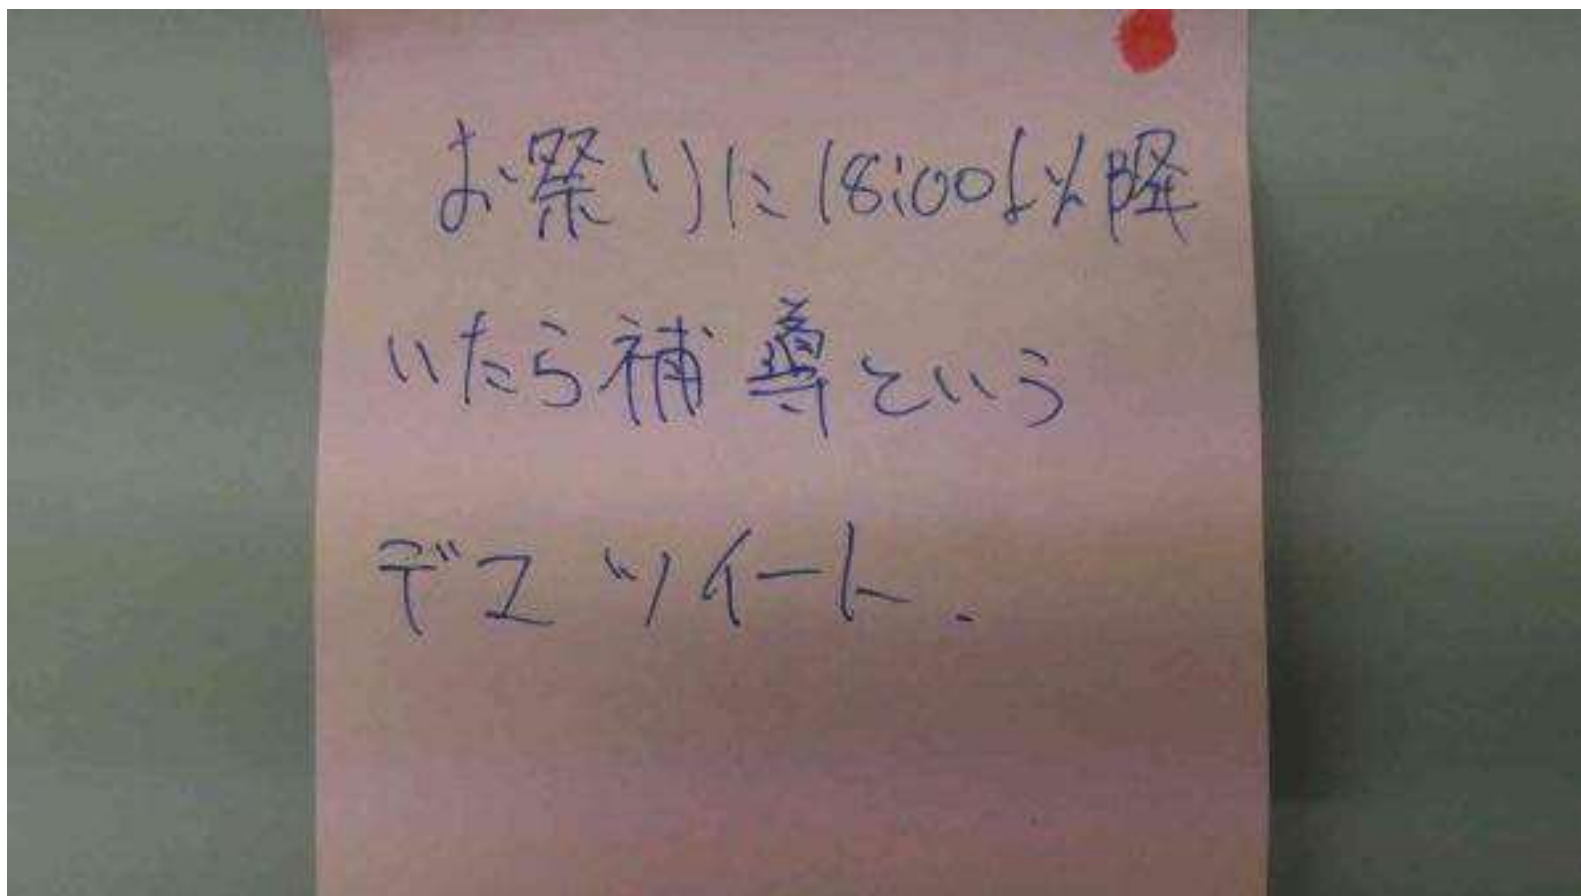 お祭りに18:00以降
いたら補導という
デマツイート.